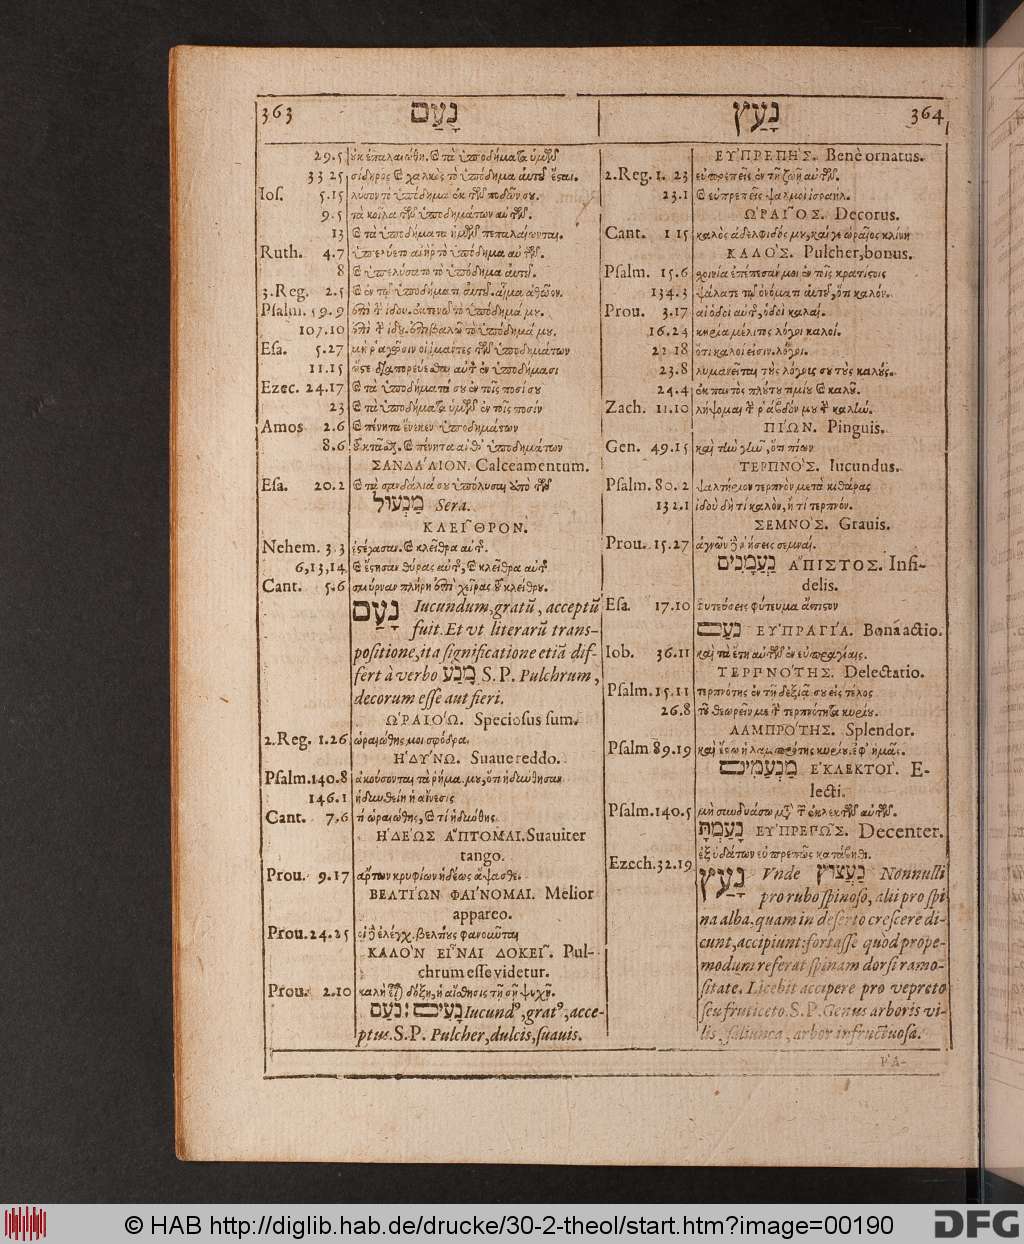 363 נָעַם
29.5 οὐκ ἐπαλαιώθη. ϗ τὰ ὑποδήματα ὑμῶν
33 25 σίδηρος ϗ χαλκὸς τὸ ὑπόδημα αὐτοῦ ἔσται.
Ios. 5.15 λῦσον τὸ ὑπόδημα ἐκ τῶν ποδῶν σου.
9.5 τὰ κοῖλα τῶν ὑποδημάτων αὐτῶν.
13 ϗ τὰ ὑποδήματα ἡμῶν πεπαλαίωνται.
Ruth. 4.7 ὑπελύετο ἀνὴρ τὸ ὑπόδημα αὐτοῦ.
8 ϗ ὑπελύσατο τὸ ὑπόδημα αὐτοῦ.
3.Reg. 2.5 ϗ ἐν τῷ ὑποδήματι αὐτοῦ. αἷμα ἀθῶον.
Psalm. 59.9 ἐπὶ τ̀ ἰδου. ἐκτενῶ τὸ ὑπόδημά μου.
107.10 ἐπὶ τ̀ ἰδου. ἐπιβαλῶ τὸ ὑπόδημά μου.
Esa. 5.27 μὴ ῥαγῶσιν οἱ ἱμάντες τῶν ὑποδημάτων
11.15 ὥστε διαπορεύεσθαι αὐτὸν ἐν ὑποδήμασι
Ezec. 24.17 ϗ τὰ ὑποδήματά σου ἐν τοῖς ποσί σου
23 ϗ τὰ ὑποδήματα ὑμῶν ἐν τοῖς ποσίν
Amos 2.6 ϗ πένητα ἕνεκεν ὑποδημάτων
8.6 ϗ πένητα ἀνθ᾽ ὑποδημάτων
ΣΑΝΔΑ΄ΛΙΟΝ. Calceamentum.
Esa. 20.2 ϗ τὰ σανδάλιά σου ὑπόλυσαι ἀπὸ τῶν
מַנְעוּל Sera.
ΚΛΕΙ͂ΘΡΟΝ.
Nehem. 3 3 ἐστέγασαν. ϗ κλεῖθρα αὐτ.
6,13,14 ϗ ἔστησαν θύρας αὐτ, ϗ κλεῖθρα αὐτ
Cant. 5.6 σμύρναν πλήρη ἐπὶ χεῖρας τοῦ κλείθρου.
נָעַם Iucundum, gratũ, acceptũ
fuit. Et vt literarũ trans-
positione, ita significatione etiã dif-
fert à verbo מָנַע S.P. Pulchrum,
decorum esse aut fieri.
ὩΡΑΙΟ΄Ω. Speciosus sum.
2.Reg. 1.26 ὡραιώθης μοι σφόδρα.
ἩΔΥ΄ΝΩ. Suaue reddo.
Psalm.140.8 ἀκούσονται τὰ ῥήμα. μου, ὅτι ἡδυνθησαν
146.1 ἡδυνθείη ἡ αἴνεσις
Cant. 7.6 τί ὡραιώθης, ϗ τί ἡδυνθης.
ἩΔΕ΄ΩΣ Ἅ῾ΠΤΟΜΑΙ. Suauiter
tango.
Prou. 9.17 ἄρτων κρυφίων ἡδέως ἅψασθε.
ΒΕΛΤΙ΄ΩΝ ΦΑΙ΄ΝΟΜΑΙ. Melior
appareo.
Prou.24.25 οἱ δ̀ ἐλέγχ. βελτίους φανοῦνται
ΚΑΛΟ᾽Ν ΕΙ᾽͂ΝΑΙ ΔΟΚΕΙ͂. Pul-
chrum esse videtur.
Prou. 2.10 καλὴ εἶναι δόξῃ, ἡ αἴσθησις τῇ σῇ ψυχῇ.
נָעִים : נָעֵם Iucundꝰ, gratꝰ, acce-
ptus. S.P. Pulcher, dulcis, suauis.
נָעַץ 364
ΕΥ᾽ΠΡΕΠΗ΄Σ. Benè ornatus.
2.Reg. 1. 23 εὐπρεπεῖς ἐν τῇ ζωῇ αὐτῶν.
23.1 ϗ εὐπρεπεῖς ψαλμοὶ ἰσραήλ.
ὩΡΑΙ͂ΟΣ. Decorus.
Cant. 1 15 καλὸς ἀδελφιδός μου, καίγε ὡραῖος κλίνη
ΚΑΛΟ΄Σ. Pulcher, bonus.
Psalm. 15.6 σχοινία ἐπέπεσάν μοι ἐν τοῖς κρατίστοις
134.3 ψάλατε τῷ ὀνόματι αὐτοῦ, ὅτι καλόν.
Prou. 3.17 αἱ ὁδοὶ αὐτ, ὁδοὶ καλαί.
16.24 κηρία μέλιτος λόγοι καλοί.
22 18 ὅτι καλοί εἰσιν. λόγοι.
23.8 λυμανεῖται τοὺς λόγους σου τοὺς καλούς.
24.4 ἐκ παντὸς πλούτου τιμίου ϗ καλοῦ.
Zach. 11.10 λήψομαι τ̀ ῥάβδόν μου τ̀ καλὴν.
ΠΙ΄ΩΝ. Pinguis.
Gen. 49.15 καὶ τὴν γῆν, ὅτι πίων
ΤΕΡΠΝΟ΄Σ. Iucundus.
Psalm. 80.2 ψαλτήριον τερπνὸν μετὰ κιθάρας
132.1 ἰδοὺ δὴ τί καλὸν, ἢ τί τερπνόν.
ΣΕΜΝΟ΄Σ. Grauis.
Prou. 15.27 ἁγνῶν δ̀ ῥήσεις σεμναί.
נַעֲמָנִים Ἄ΄ΠΙΣΤΟΣ. Infi-
delis.
Esa. 17.10 φυτεύσεις φύτευμα ἄπιστον
נֹעַם ΕΥ᾽ΠΡΑΓΙ΄Α. Bona actio.
Iob. 36.11 καὶ τὰ ἔτη αὐτῶν ἐν εὐπραγίαις.
ΤΕΡΠΝΟ΄ΤΗΣ. Delectatio.
Psalm.15.11 τερπνότης ἐν τῇ δεξιᾷ σου εἰς τέλος
26.8 τοῦ θεωρεῖν με τ̀ τερπνότητα κυρίου.
ΛΑΜΠΡΟ΄ΤΗΣ. Splendor.
Psalm 89.19 καὶ ἔστω ἡ λαμπρότης κυρίου. ἐφ᾽ ἡμᾶς.
מַנְעַמִּים ἘΚΛΕΚΤΟΙ΄. E-
lecti.
Psalm.140.5 μὴ συνδυάσω μετὰ τ̀ ἐκλεκτῶν αὐτῶν.
נָעַמְתָּ ΕΥ᾽ΠΡΕΠΩ͂Σ. Decenter.
Ezech.32.19 ἐξ ὑδάτων εὐπρεπῶς κατάβηθι.
נָעַץ Vnde נַעֲצוּץ Nonnulli
pro rubo spinoso, alii pro spi
na alba, quam in deserto crescere di-
cunt, accipiunt: fortasse quòd prope-
modum referat spinam dorsi ramo-
sitate. Licebit accipere pro vepreto
seu fruticeto. S.P. Genus arboris vi-
lis, saliunca, arbor infructuosa.
ΡΑ-
© HAB http://diglib.hab.de/drucke/30-2-theol/start.htm?image=00190
DFG